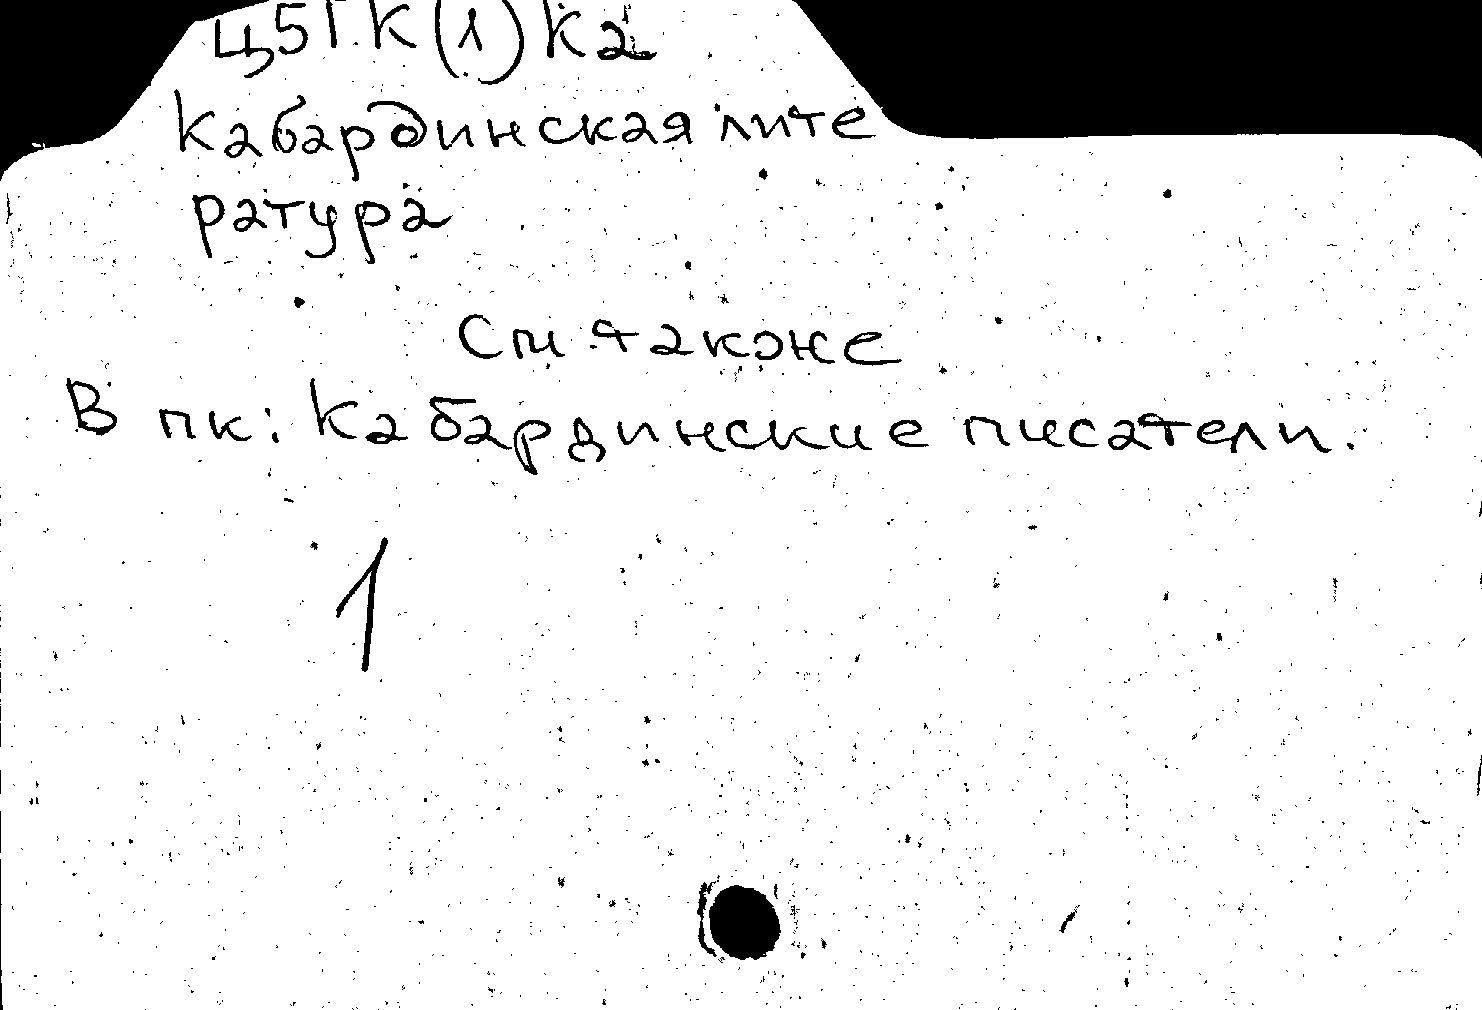 Ц5ГК(1)Ка
Кабардинская лите
ратура
См также
В пк: Кабардинские писатели.
1